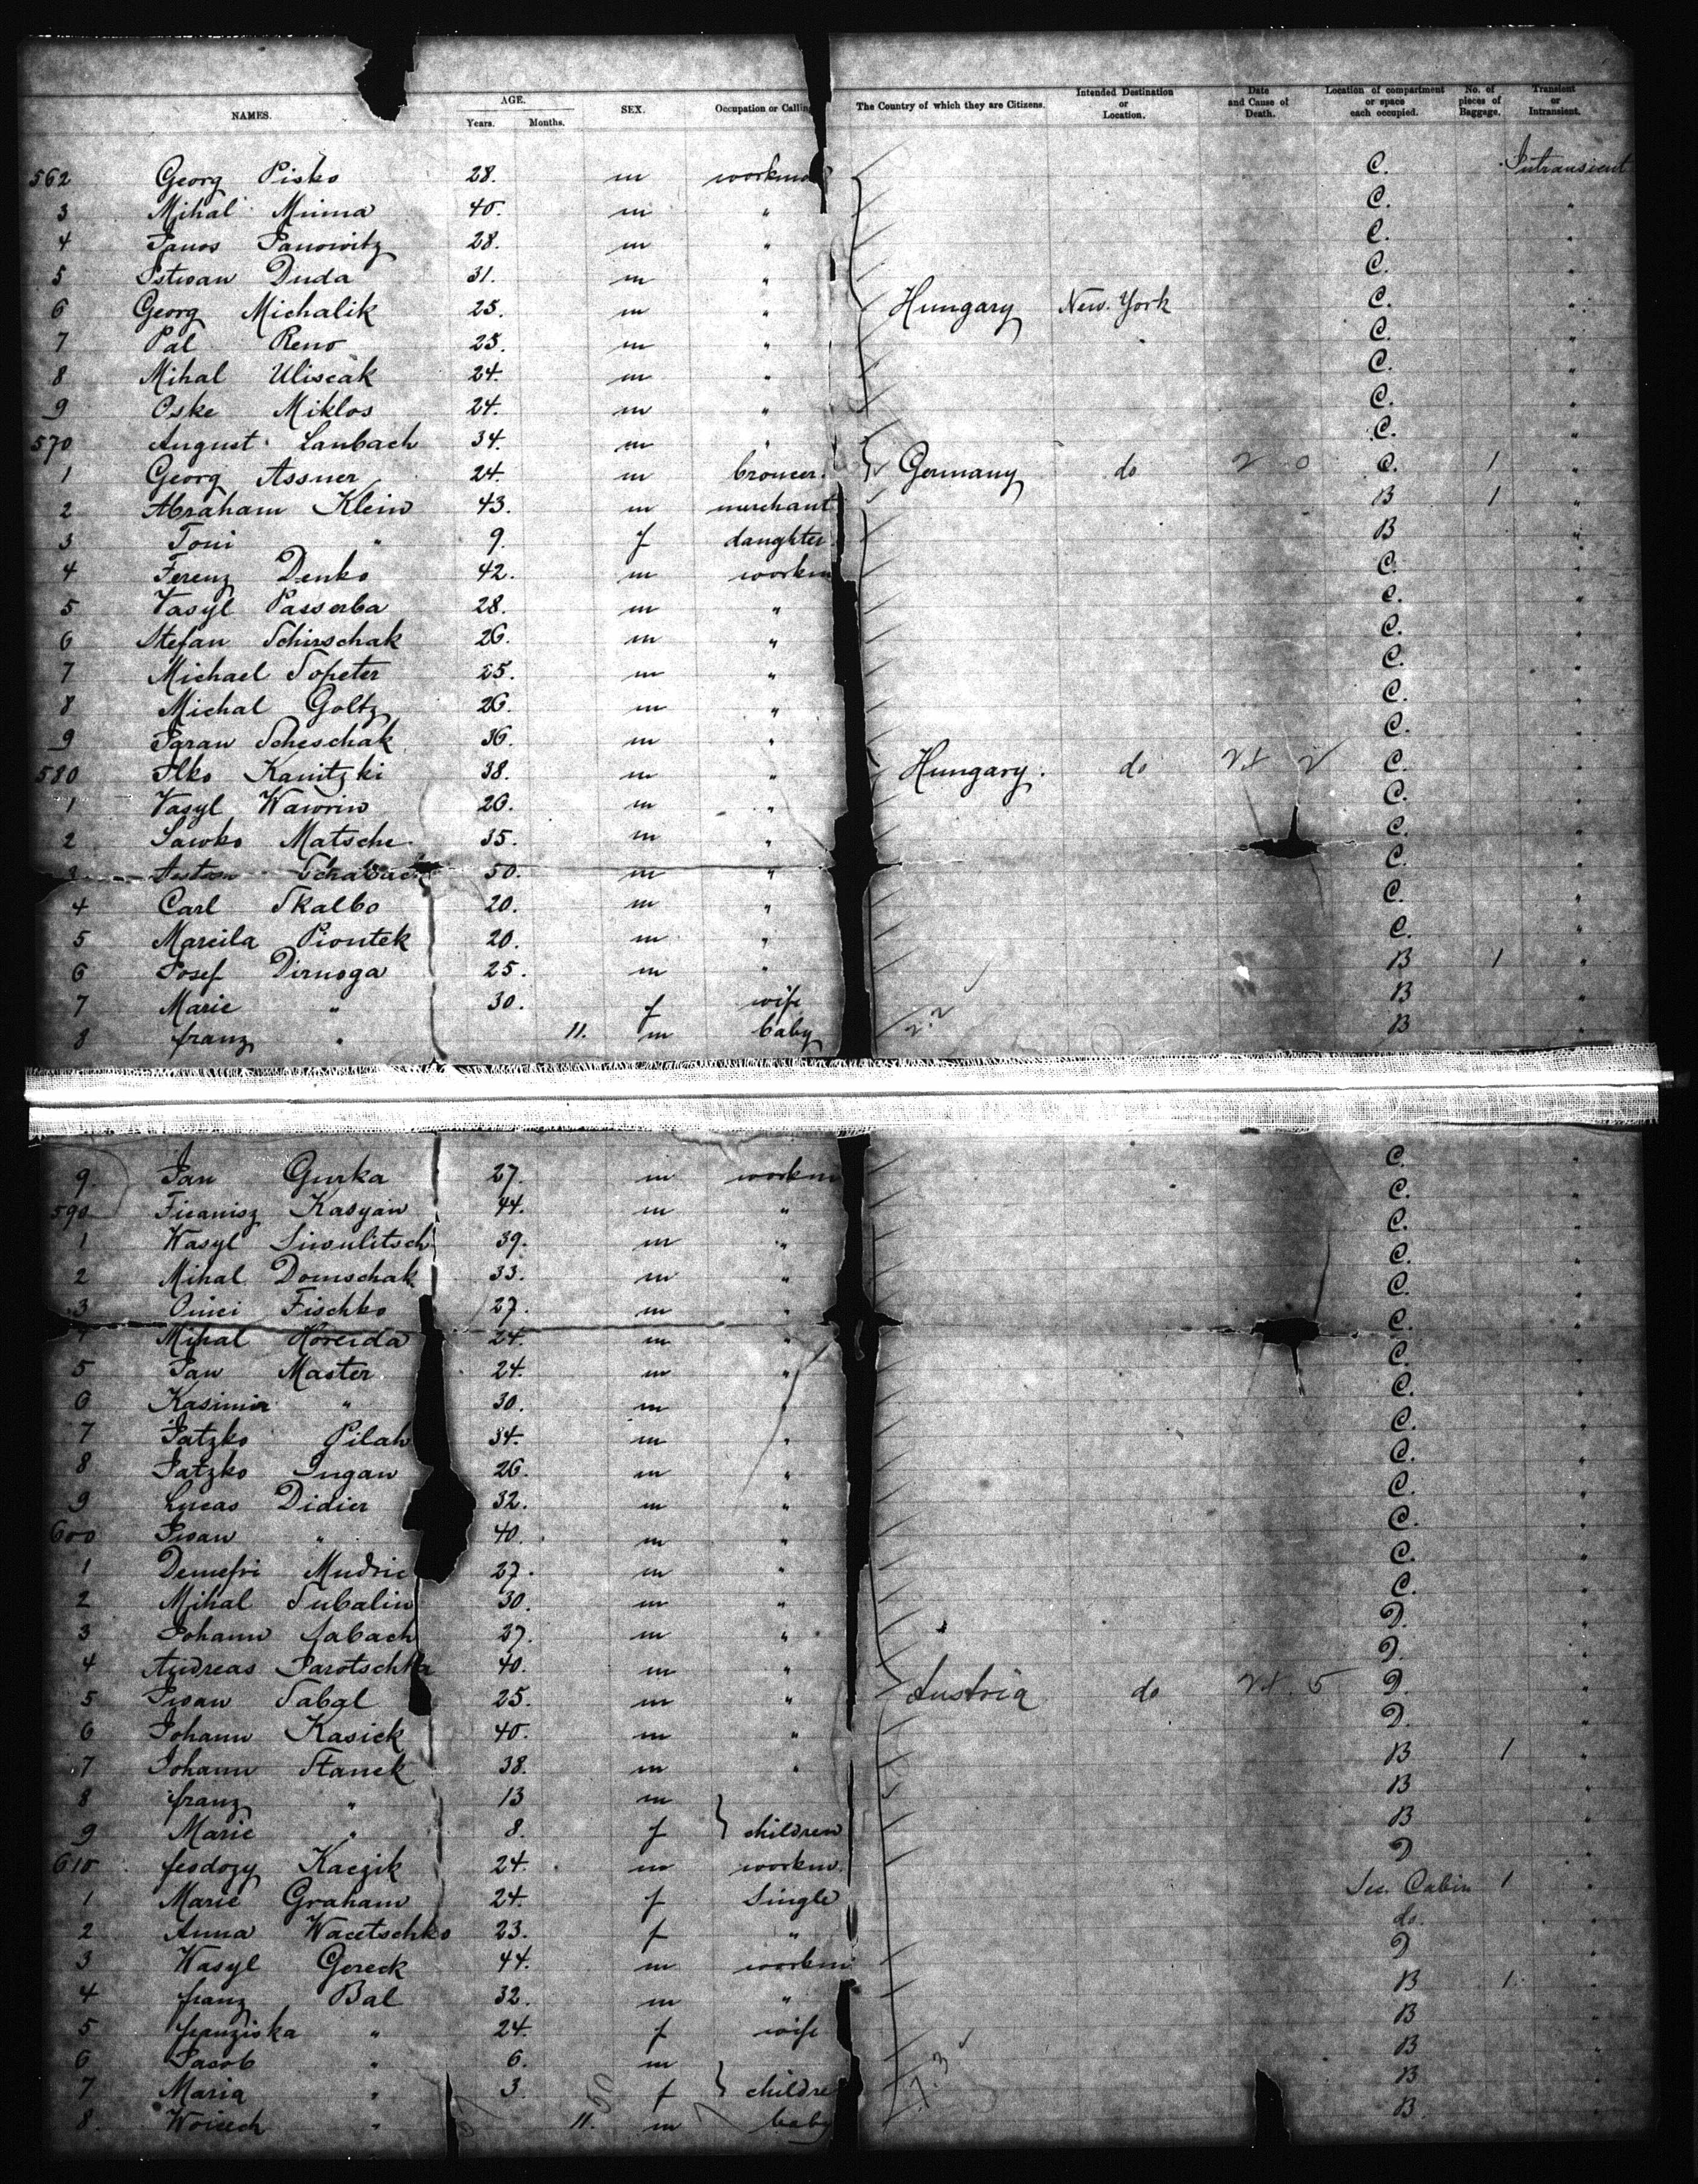 NAMES. AGE. Years. Months. SEX. Occupation or Calling The Country of which they are Citizens. Intended Destination or Location. Date and Cause of Death. Location of compartment or space each occupied. No. of pieces of Baggage. Transient or Intransient.
562 Georg Pisko 28. m workm C. Intransient
3 Mihal Mima 40. m " C. "
4 Janos Janowitz 28. m " C. "
5 Istwan Duda 31. m " C. "
6 Georg Michalik 25. m " Hungary New. York C. "
7 Pal Reno 25. m " C. "
8 Mihal Uliscak 24. m " C. "
9 Oske Miklos 24. m " C. "
570 August Lanbach 34. m " C. "
1 Georg Assner 24. m brower. Germany do 2 0 C. 1 "
2 Abraham Klein 43. m merchant B 1 "
3 Toni " 9. f daughter B "
4 Ferenz Denko 42. m workm C. "
5 Vasyl Passerba 28. m " C. "
6 Stefan Schirschak 26. m " C. "
7 Michael Topeter 25. m " C. "
8 Michal Goltz 26. m " C. "
9 Paran Scheschak 36. m " C. "
580 Ilko Kanitzki 38. m " Hungary. do C. "
1 Vasyl Wawrin 26. m " C. "
2 Sawko Matsche 35. m " C. "
3 50. m " C. "
4 Carl Skalbo 20. m " C. "
5 Marcila Piontek 20. m " C. "
6 Josef Dirnoga 25. m " B 1 "
7 Marie " 30. f wife B "
8 franz " 11. m baby B "
9 Jan Gurka 27. m workm C. "
590 Kasyan 44. m " C. "
1 Wasyl Siwulitsch 39. m " C. "
2 Mihal Domschak 33. m " C. "
3 Fischko 27. m " C. "
4 Mihal Horeida 24. m " C. "
5 Jan Master 24. m " C. "
6 Kasimir " 30. m " C. "
7 Jatzko Pilah 34. m " C. "
8 Jatzko Ingan 26. m " C. "
9 Lucas Didier 32. m " C. "
600 Iwan " 40. m " C. "
1 Demefri Mudric 27. m " C. "
2 Mihal Subalin 30. m " C. "
3 Johann Labach 37. m " D. "
4 Andreas Parotschka 40. m " D. "
5 Iwan Sabal 25. m " Austria do D. "
6 Johann Kasick 40. m " D. "
7 Johann Stanek 38. m " B 1 "
8 franz " 13 m B "
9 Marie " 8. f } children B "
610 feodozy Kaczik 24. m workm. D "
1 Marie Graham 24. f Single Sec. Cabin 1 "
2 Anna Wacetschko 23. f " do. "
3 Wasyl Gereck 44. m workm D "
4 franz Bal 32. m " B 1. "
5 franziska " 24. f wife B "
6 Jacob " 6. m B "
7 Maria " 3. f } childre B "
8. Woicech " 11. m baby B "